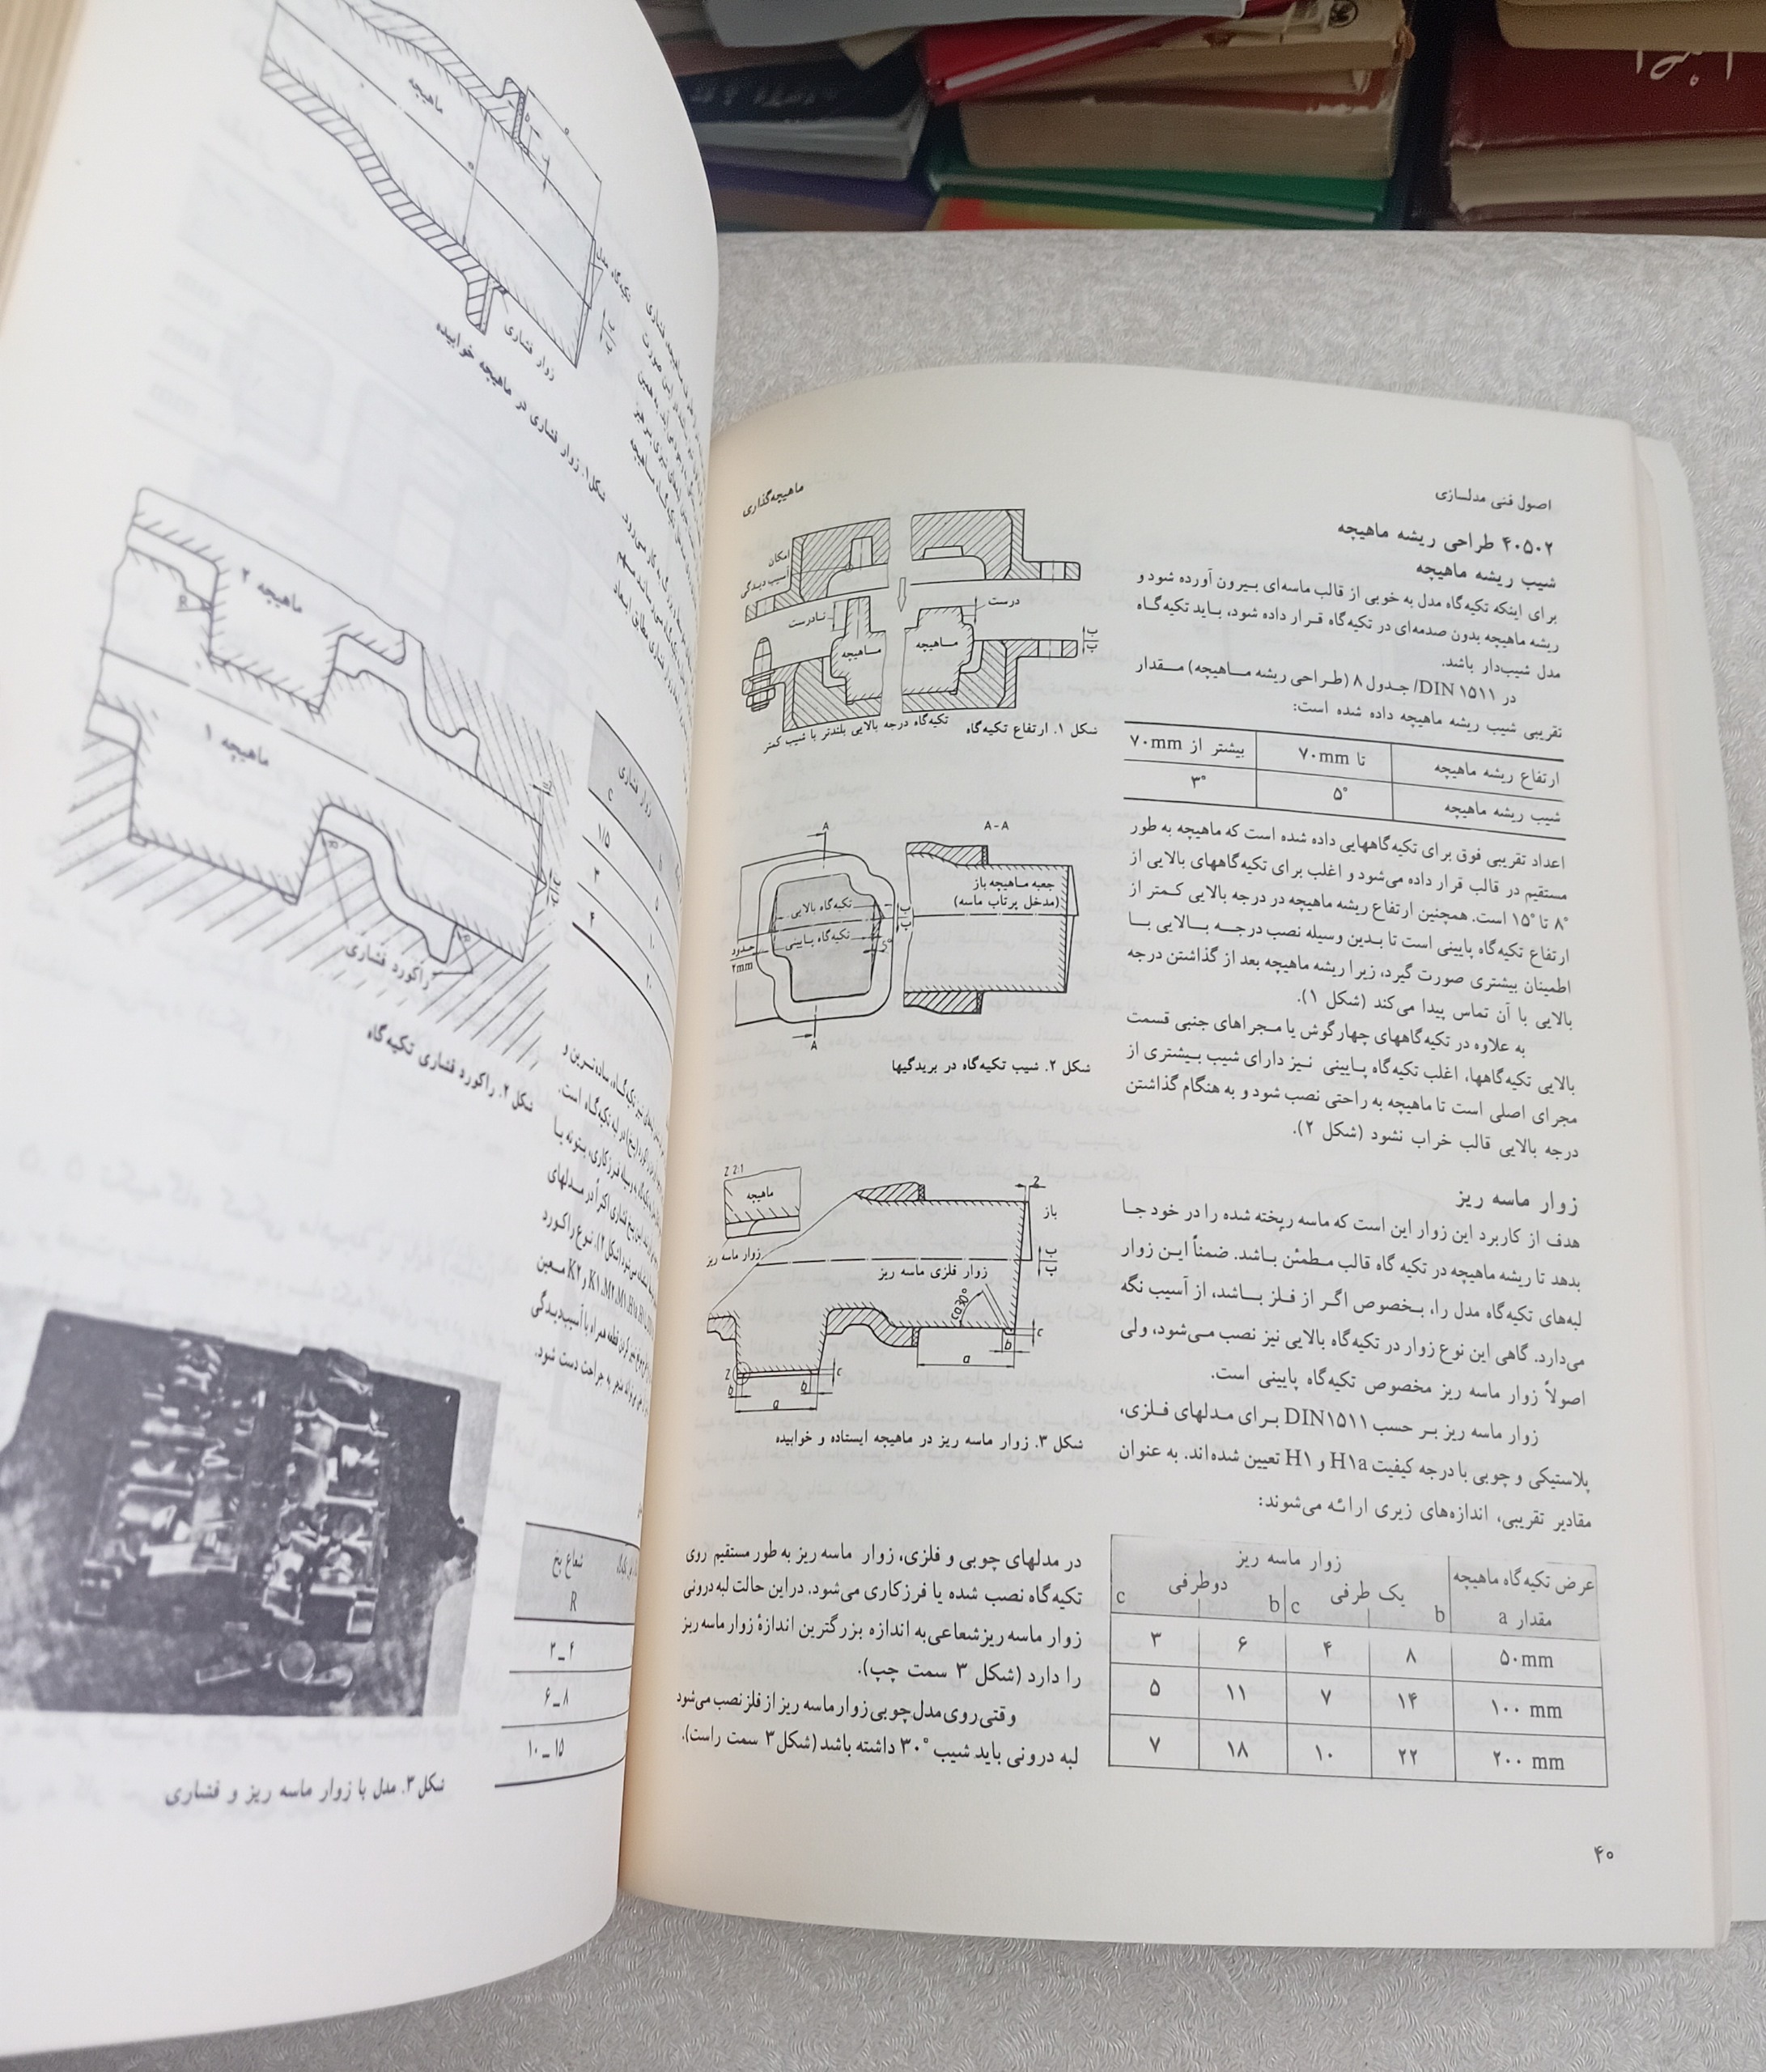 اصول فنی مدلسازی
ماهیچه‌گذاری
۴۰۵۰۲ طراحی ریشه ماهیچه
شیب ریشه ماهیچه
برای اینکه تکیه‌گاه مدل به خوبی از قالب ماسه‌ای بیرون آورده شود و
ریشه ماهیچه بدون صدمه‌ای در تکیه‌گاه قرار داده شود، باید تکیه‌گاه
مدل شیب‌دار باشد.
در DIN ۱۵۱۱/ جدول ۸ (طراحی ریشه ماهیچه) مقدار
تقریبی شیب ریشه ماهیچه داده شده است:
ارتفاع ریشه ماهیچه تا ۷۰mm بیشتر از ۷۰mm
شیب ریشه ماهیچه ۵° ۳°
اعداد تقریبی فوق برای تکیه‌گاههایی داده شده است که ماهیچه به طور
مستقیم در قالب قرار داده می‌شود و اغلب برای تکیه‌گاههای بالایی از
۸° تا ۱۵° است. همچنین ارتفاع ریشه ماهیچه در درجه بالایی کمتر از
ارتفاع تکیه‌گاه پایینی است تا بدین وسیله نصب درجه بالایی با
اطمینان بیشتری صورت گیرد، زیرا ریشه ماهیچه بعد از گذاشتن درجه
بالایی با آن تماس پیدا می‌کند (شکل ۱).
به علاوه در تکیه‌گاههای چهارگوش یا مجراهای جنبی قسمت
بالایی تکیه‌گاهها، اغلب تکیه‌گاه پایینی نیز دارای شیب بیشتری از
مجرای اصلی است تا ماهیچه به راحتی نصب شود و به هنگام گذاشتن
درجه بالایی قالب خراب نشود (شکل ۲).
زوار ماسه ریز
هدف از کاربرد این زوار این است که ماسه ریخته شده را در خود جا
بدهد تا ریشه ماهیچه در تکیه گاه قالب مطمئن باشد. ضمناً این زوار
لبه‌های تکیه‌گاه مدل را، بخصوص اگر از فلز باشد، از آسیب نگه
می‌دارد. گاهی این نوع زوار در تکیه‌گاه بالایی نیز نصب می‌شود، ولی
اصولاً زوار ماسه ریز مخصوص تکیه‌گاه پایینی است.
زوار ماسه ریز بر حسب DIN۱۵۱۱ برای مدلهای فلزی،
پلاستیکی و چوبی با درجه کیفیت H۱a و H۱ تعیین شده‌اند. به عنوان
مقادیر تقریبی، اندازه‌های زیری ارائه می‌شوند:
عرض تکیه‌گاه ماهیچه زوار ماسه ریز
مقدار a یک طرفی دوطرفی
b c b c
۵۰mm ۸ ۴ ۶ ۳
۱۰۰ mm ۱۴ ۷ ۱۱ ۵
۲۰۰ mm ۲۲ ۱۰ ۱۸ ۷
امکان
آسیب دیدگی
نادرست
درست
ماهیچه
ماهیچه
ب
ب
شکل ۱. ارتفاع تکیه‌گاه
تکیه‌گاه درجه بالایی بلندتر با شیب کمتر
A
A-A
جعبه ماهیچه باز
(مدخل پرتاب ماسه)
تکیه‌گاه بالایی
تکیه‌گاه پایینی
ب
ب
حدود
۲mm
5°
A
شکل ۲. شیب تکیه‌گاه در بریدگیها
Z 2:1
ماهیچه
زوار ماسه ریز
2
باز
ب
ب
زوار فلزی ماسه ریز
ca30°
c
b
a
Z
c
b
b
a
شکل ۳. زوار ماسه ریز در ماهیچه ایستاده و خوابیده
در مدلهای چوبی و فلزی، زوار ماسه ریز به طور مستقیم روی
تکیه‌گاه نصب شده یا فرزکاری می‌شود. دراین حالت لبه درونی
زوار ماسه ریز شعاعی به اندازه بزرگترین اندازهٔ زوار ماسه ریز
را دارد (شکل ۳ سمت چپ).
وقتی روی مدل چوبی زوار ماسه ریز از فلز نصب می‌شود
لبه درونی باید شیب ۳۰° داشته باشد (شکل ۳ سمت راست).
۴۰
ماهیچه
تکیه‌گاه مدل
زوار فشاری
شکل ۱. زوار فشاری در ماهیچه خوابیده
ماهیچه ۲
R
ماهیچه ۱
R
R
راکورد فشاری
شکل ۲. راکورد فشاری تکیه‌گاه
زوار فشاری
c
۱/۵
۳
۴
۵
۱۰
۲۰
تکیه‌گاه، ساده‌ترین و
لبه تکیه‌گاه است.
شعاع پخ
R
۲ــ۴
۶ــ۸
۱۰ــ۱۵
شکل ۳. مدل با زوار ماسه ریز و فشاری